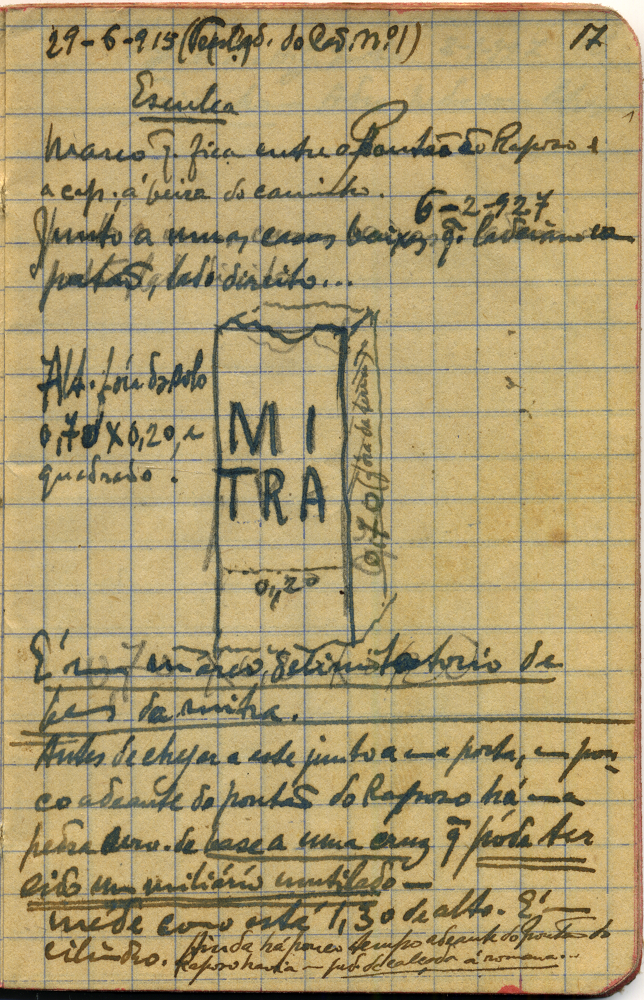 29-6-915 (do Cad. nº1) 17
Esculca
Marco q̃ fica entre o Pontão do Raposo e
a cap., á beira do caminho.
6-2-927
Junto a umas casas baixas, q̃ ladeiam o
pontão, lado direito...
Alt. fóra do solo
0,70 x 0,20, e
quadrado.
MI
TRA
0,70 (fóra da terra)
0,20
É um marco delimitatorio de
bens da mitra.
Antes de chegar a este junto a uma porta, um pou-
co adeante do pontão do Raposo há uma
pedra de base a uma cruz q̃ póde ter
sido um miliário mutilado —
mede como está 1,30 de alto. É
cilindro.
Ainda há pouco tempo adeante do pontão do
Raposo havia um calçada á romana...